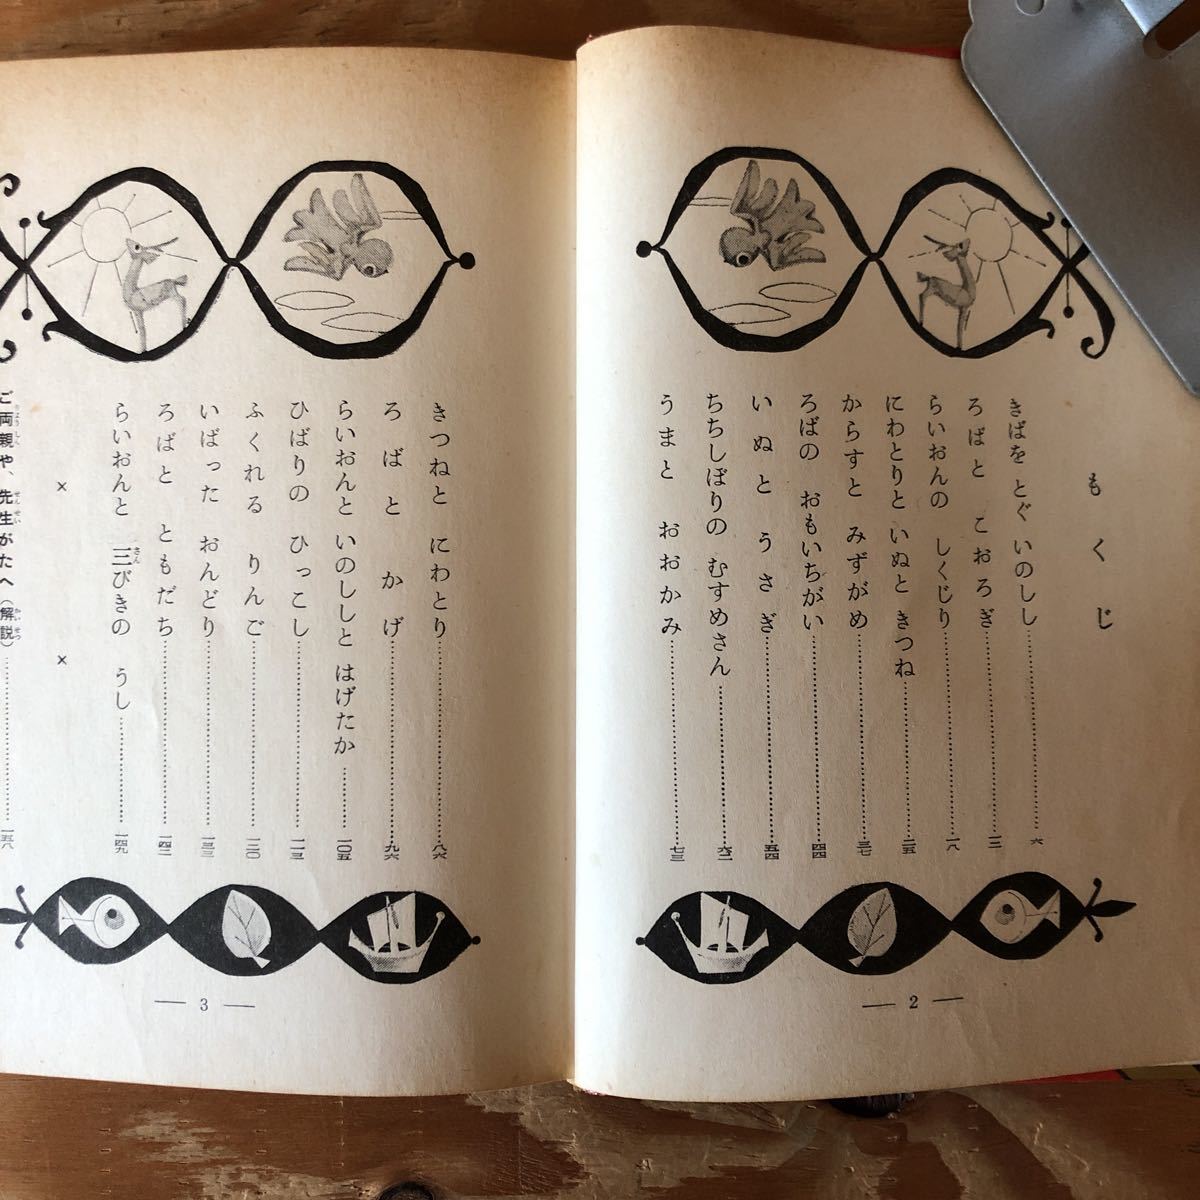 もくじ
きばを とぐ いのしし…………六
ろばと こおろぎ…………一二
らいおんの しくじり…………一八
にわとりと いぬと きつね…………二五
からすと みずがめ…………三七
ろばの おもいちがい…………四四
いぬと うさぎ…………五四
ちちしぼりの むすめさん…………六二
うまと おおかみ…………七三
2
きつねと にわとり…………八六
ろばと かげ…………九六
らいおんと いのししと はげたか…………一〇五
ひばりの ひっこし…………一一三
ふくれる りんご…………一二〇
いばった おんどり…………一三三
ろばと ともだち…………一四二
らいおんと 三びきの うし…………一四九
× ×
ご両親や、先生がたへ(解説)…………一五八
3